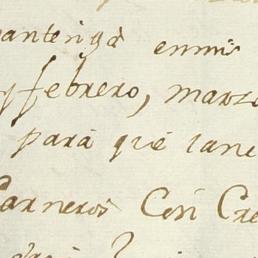 mantenga enmis
y febrero, marzo
para que
Carneros Con Cre